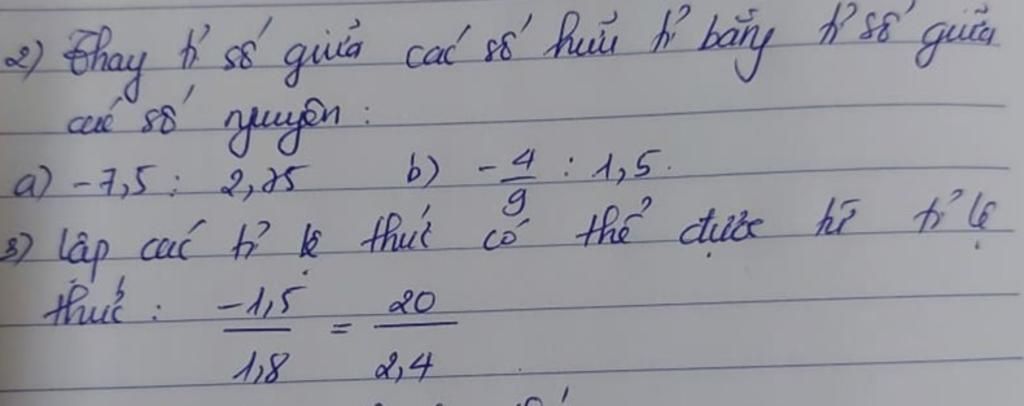 2) Thay tỉ số giữa các số hữu tỉ bằng tỉ số giữa
các số nguyên :
a) -7,5 : 2,25 b) -4/9 : 1,5.
3) lập các tỉ lệ thức có thể được từ tỉ lệ
thức : -1,5/1,8 = 20/2,4